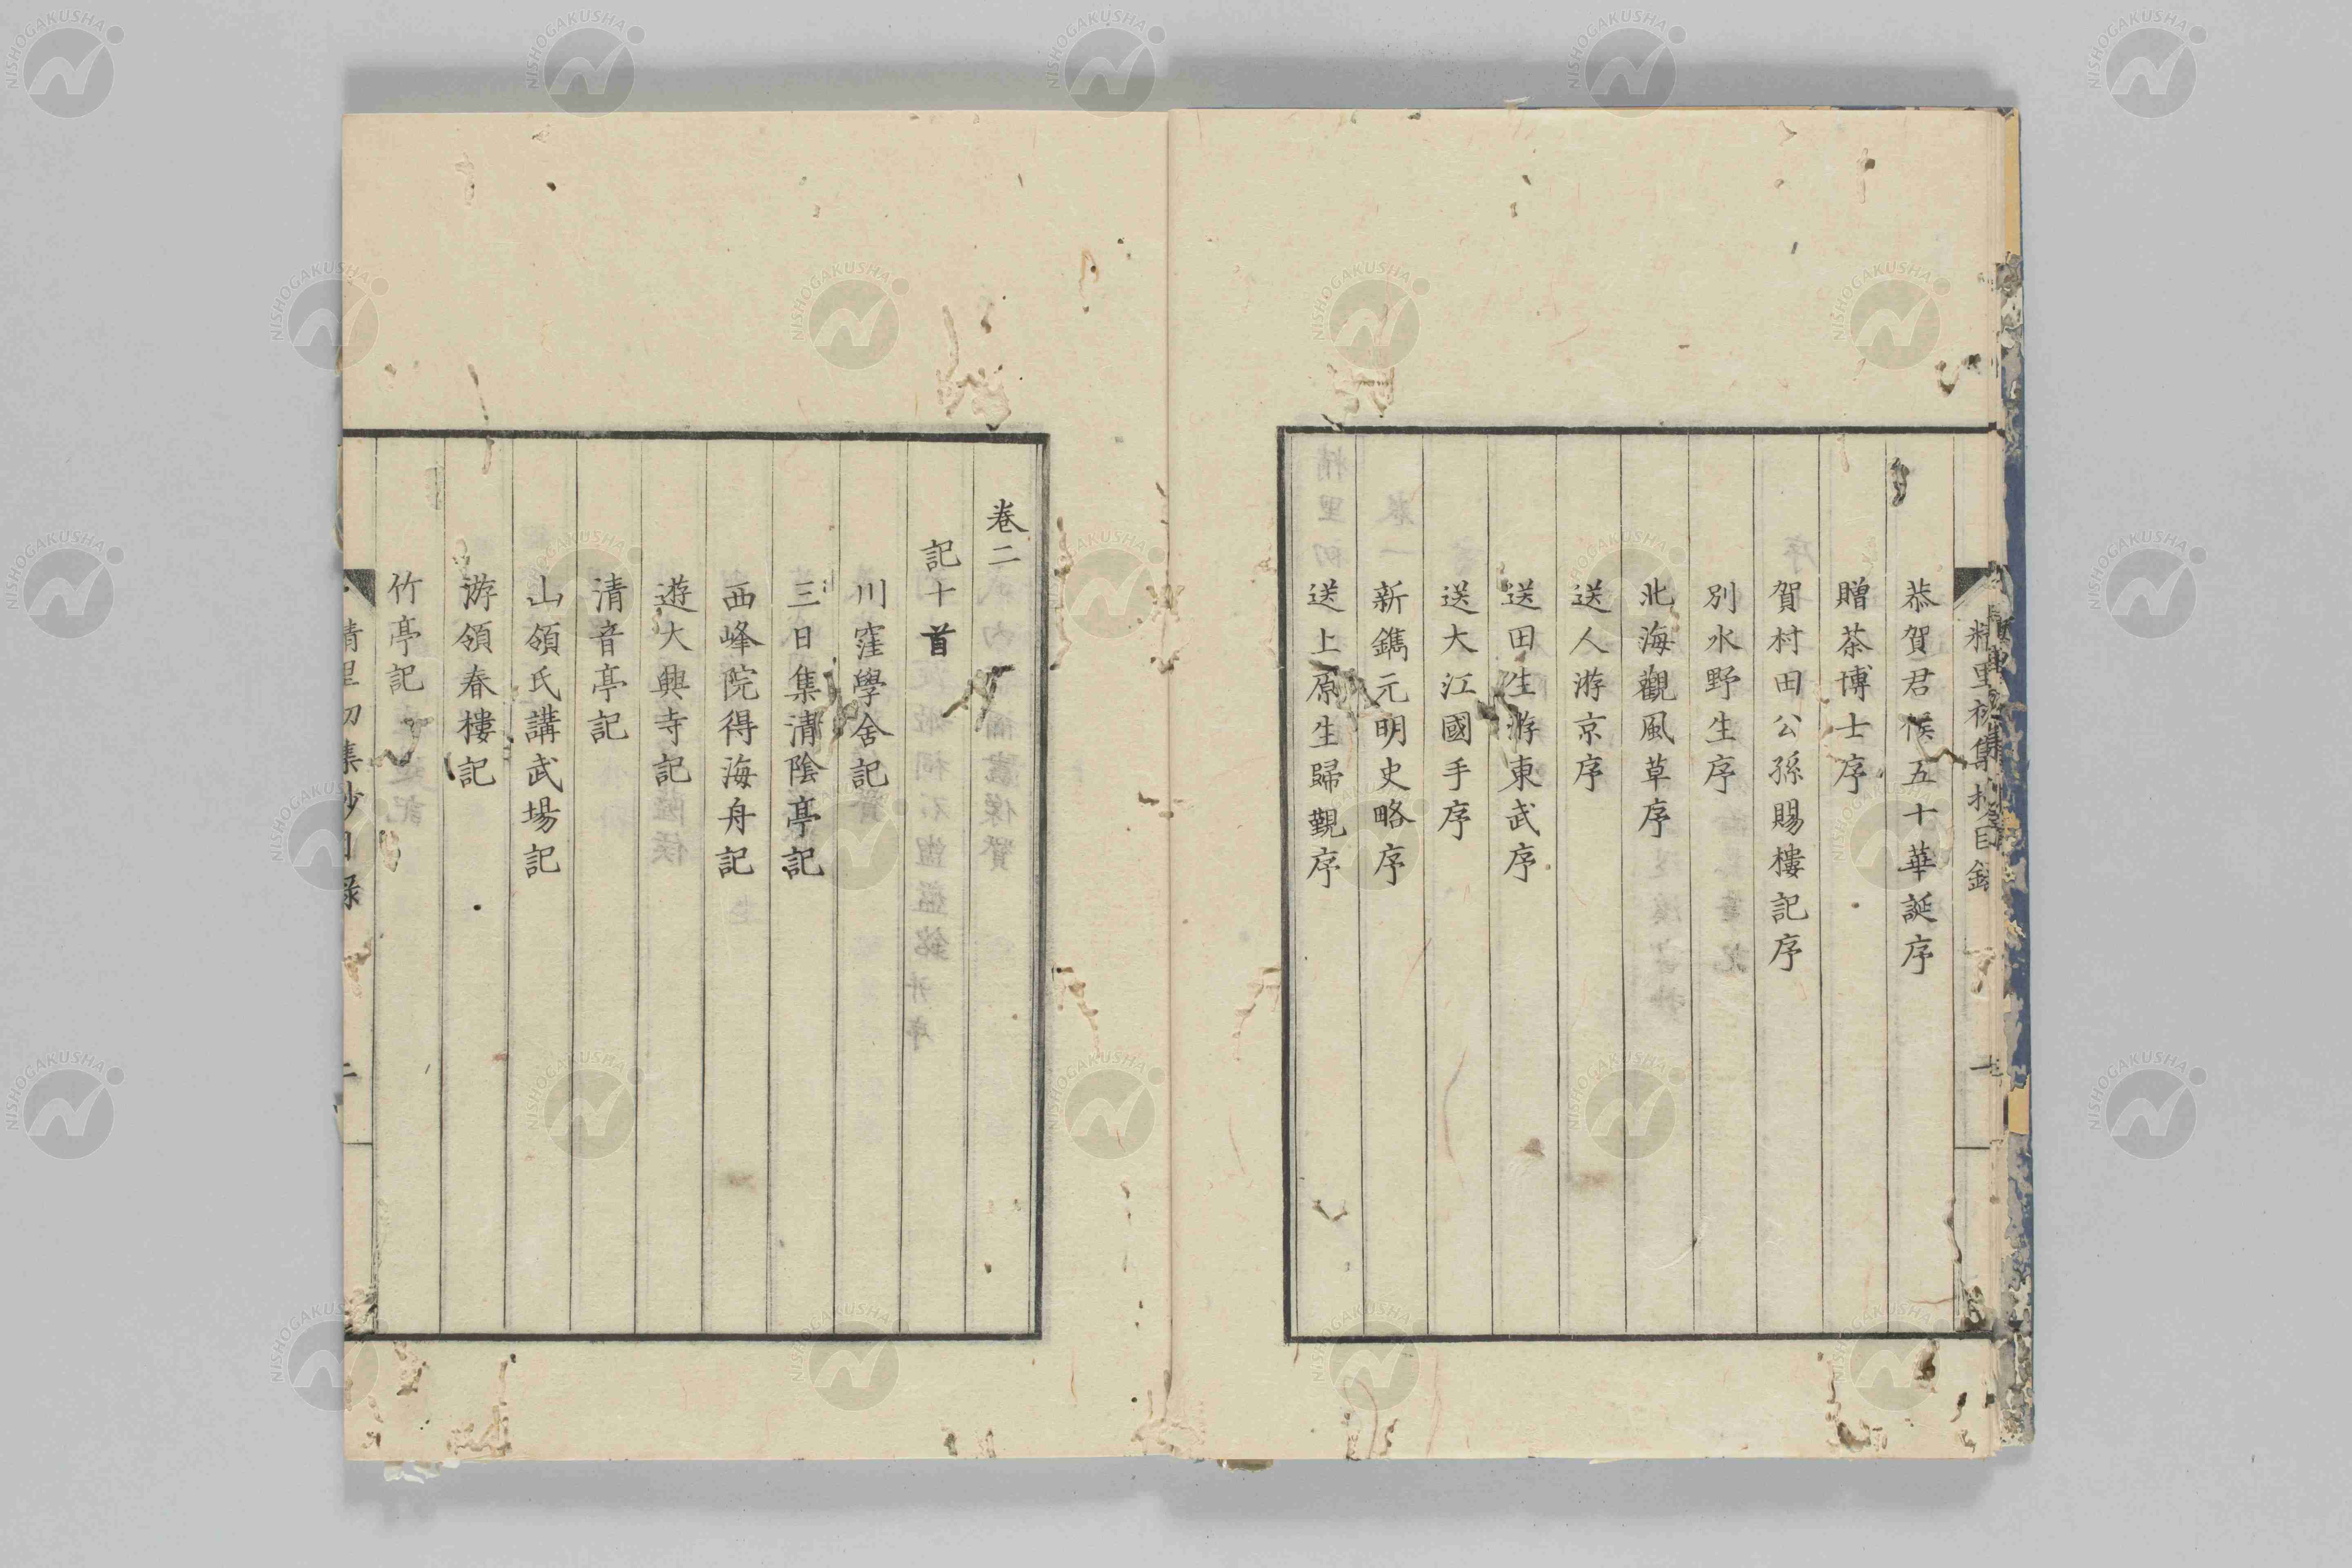 恭賀君侯五十華誕序
贈茶博士序
賀村田公孫賜樓記序
別水野生序
北海觀風草序
送人游京序
送田生游東武序
送大江國手序
新鐫元明史略序
送上原生歸覲序
卷二
記十首
川窪學舍記
三日集清陰亭記
西峰院得海舟記
遊大興寺記
清音亭記
山領氏講武場記
游領春樓記
竹亭記
NISHOGAKUSHA